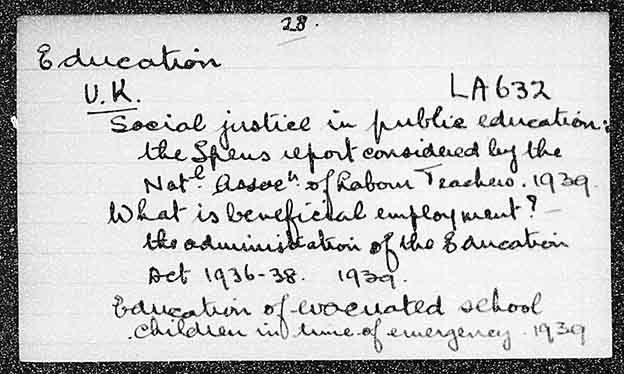 28.
Education
U.K. LA632
Social justice in public education:
the Spens report considered by the
Natl. Assocn. of Labour Teachers. 1939.
What is beneficial employment? –
the administration of the Education
Act 1936-38. 1939.
Education of evacuated school
children in time of emergency. 1939